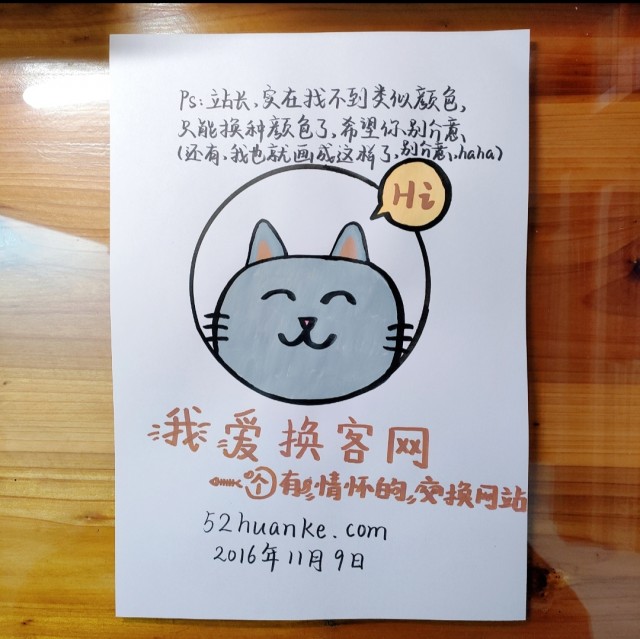 Ps:站长,实在找不到类似颜色,
只能换种颜色了,希望你别介意
(还有,我也就画成这样了,别介意,haha)
Hi
我爱换客网
一个有情怀的交换网站
52huanke.com
2016年11月9日